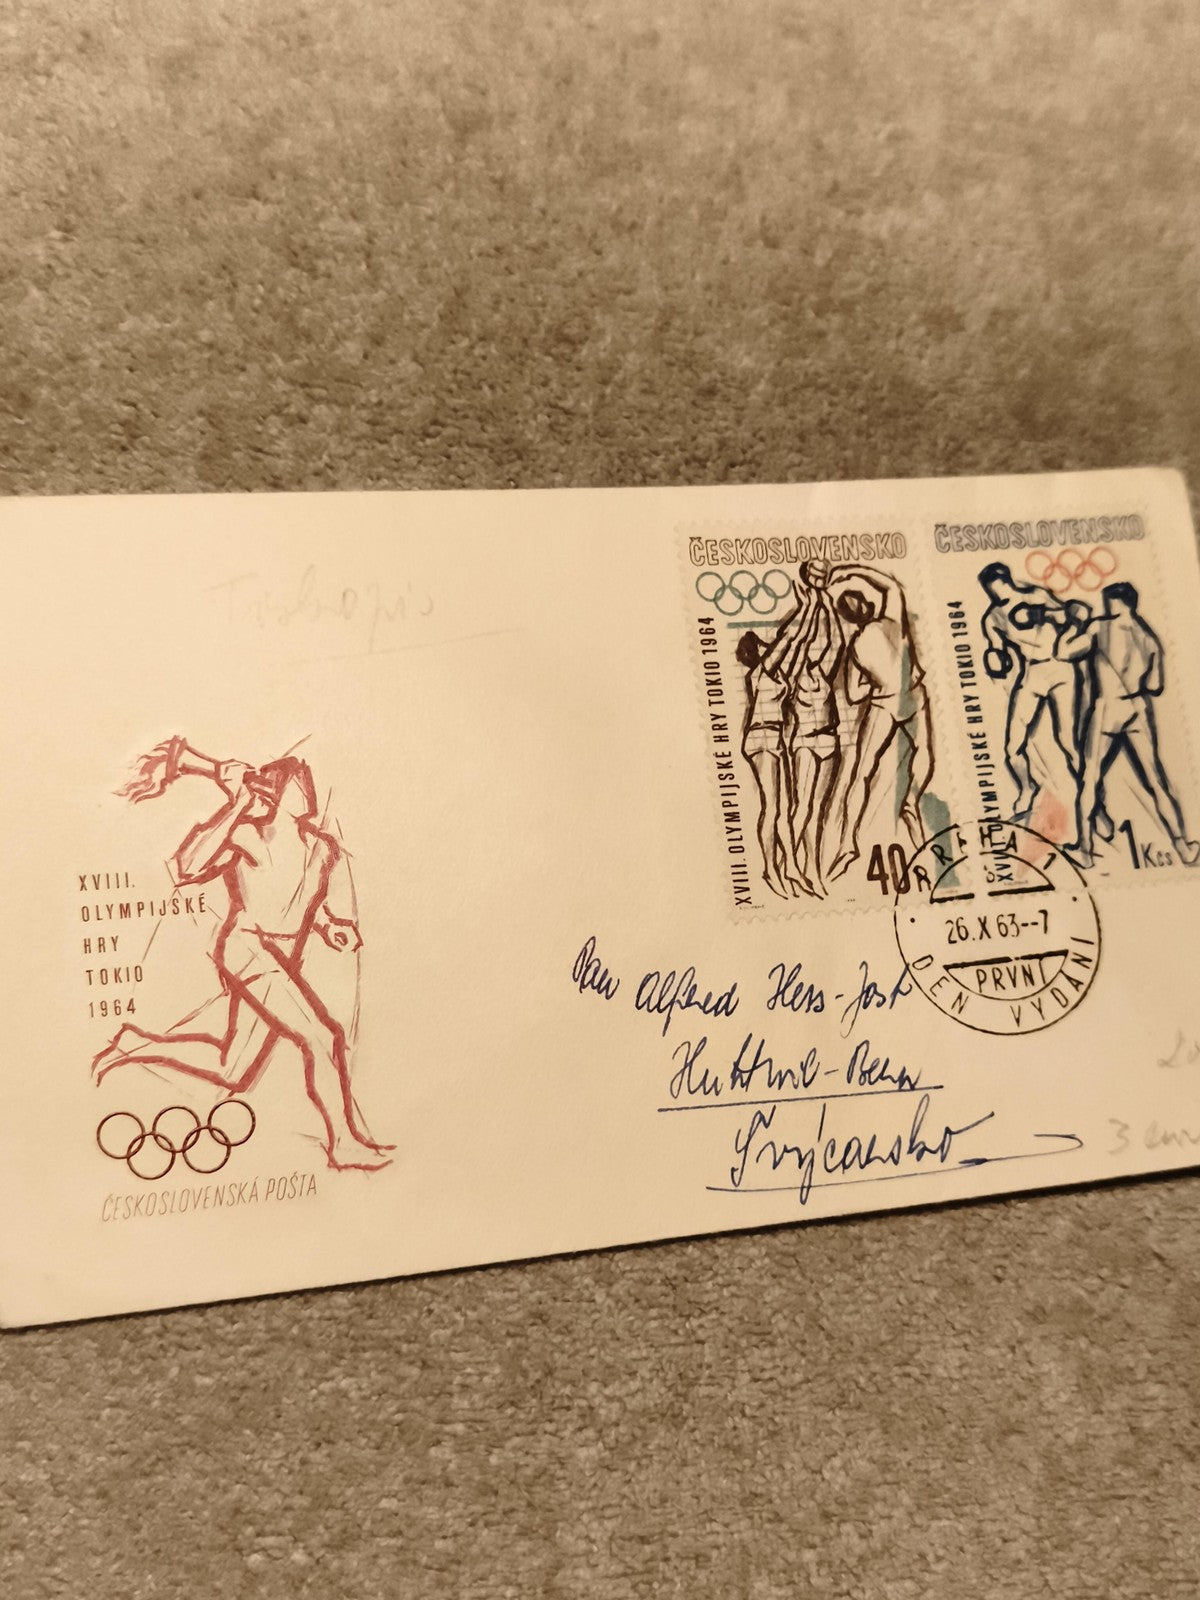 ČESKOSLOVENSKO
XVIII. OLYMPIJSKÉ HRY TOKIO 1964
40
ČESKOSLOVENSKO
XVIII. OLYMPIJSKÉ HRY TOKIO 1964
1 Kčs
PRAHA 1
26.X 63--7
PRVNÍ
DEN VYDÁNÍ
XVIII.
OLYMPIJSKÉ
HRY
TOKIO
1964
ČESKOSLOVENSKÁ POŠTA
Pan Alfred Hess-Jost
Huttwil-Bern
Švýcarsko